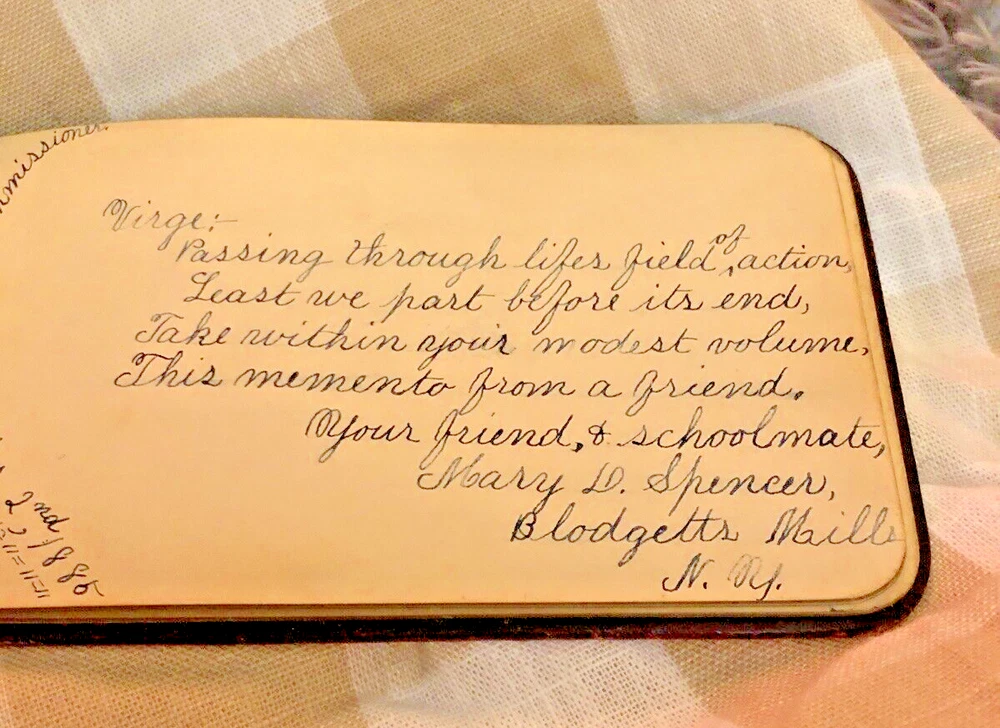 Virge:-
Passing through lifes field of action,
Least we part before its end,
Take within your modest volume,
This memento from a friend.
Your friend, & schoolmate,
Mary D. Spencer,
Blodgetts Mills
N. Y.
2nd 1885